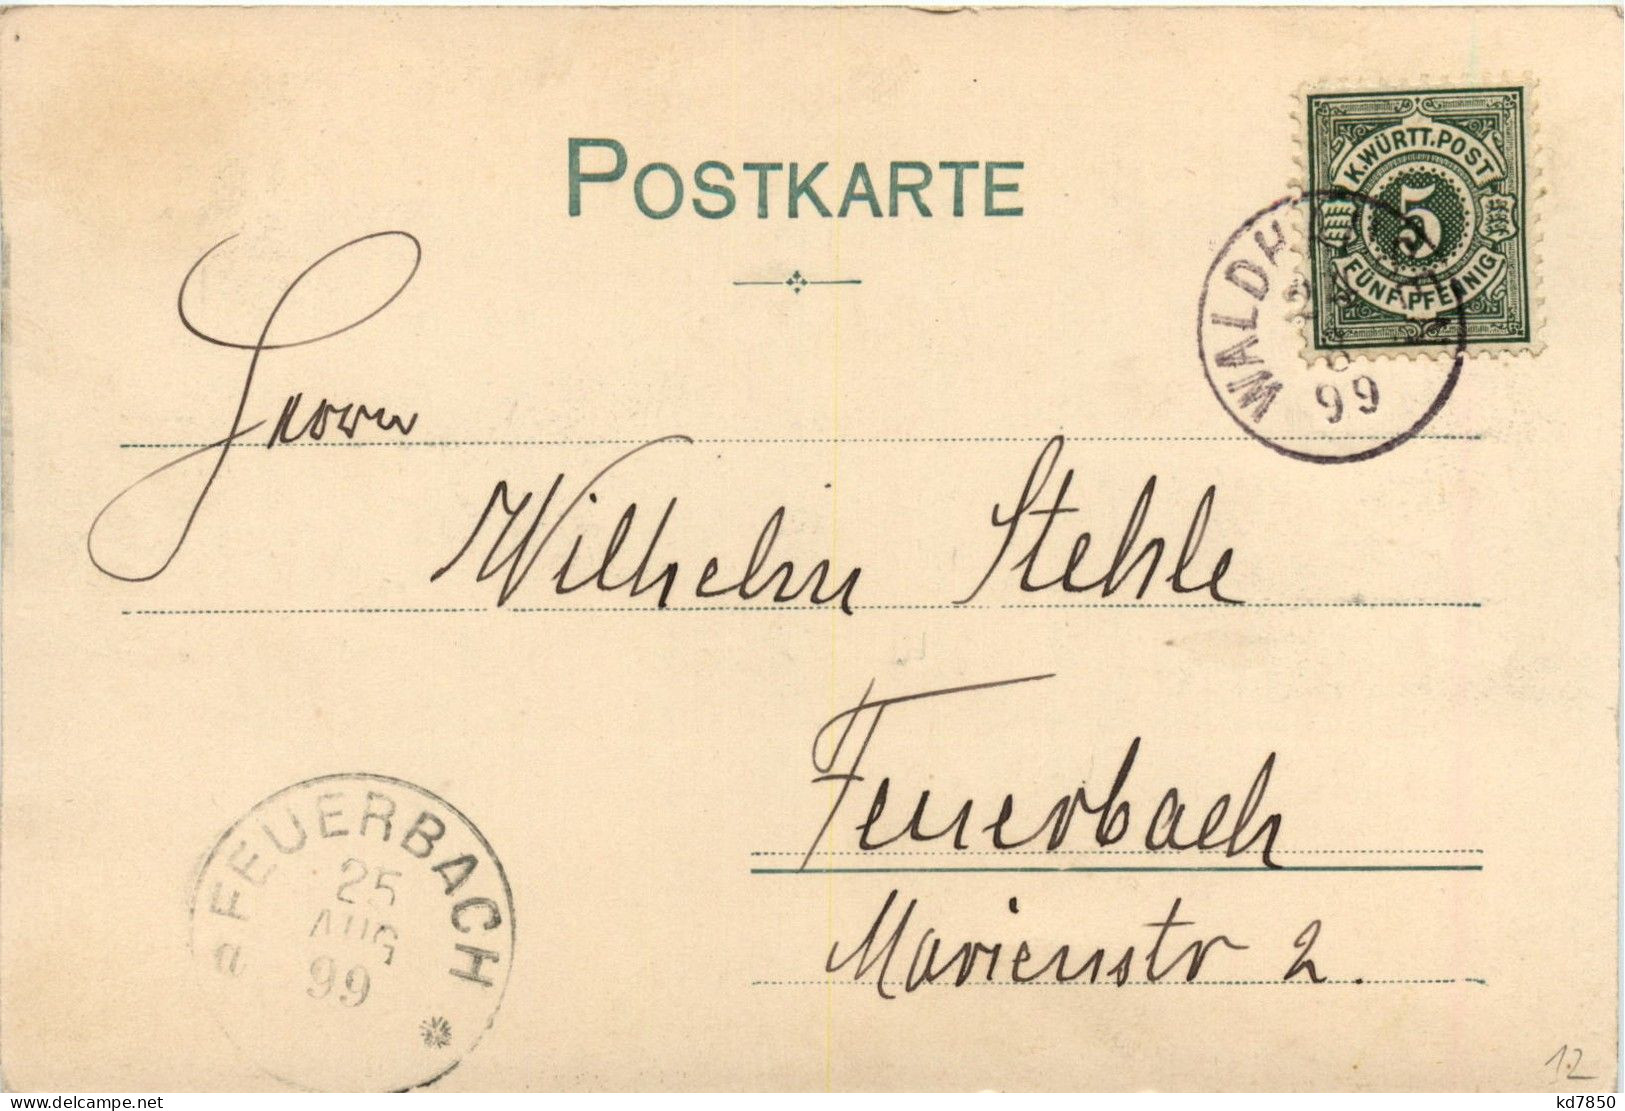 POSTKARTE
K. WÜRTT. POST
5
FÜNF PFENNIG
99
Herrn
Wilhelm Stehle
Feuerbach
Marienstr 2.
FEUERBACH
25
AUG
99
a
12
www.delcampe.net
kd7850